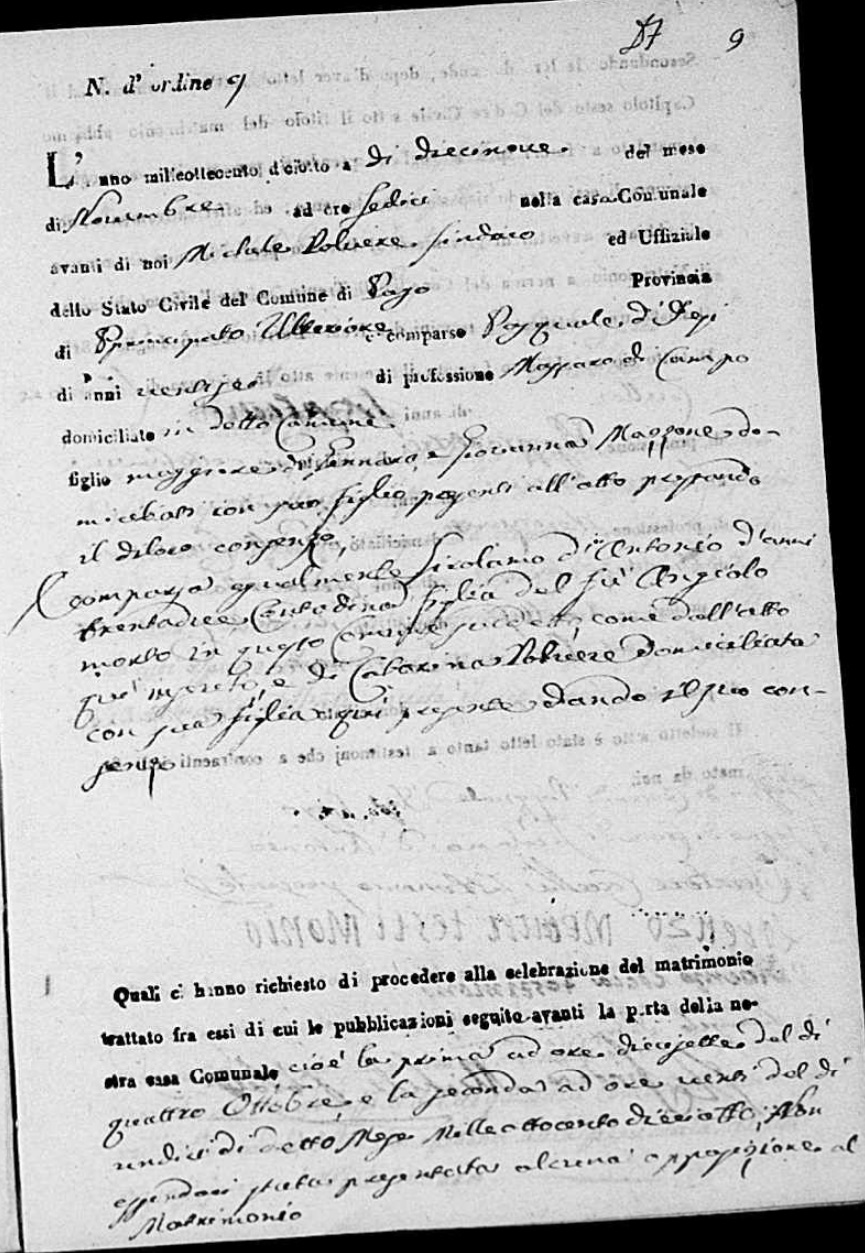 9
N. d' ordine 9
L' anno milleottecento diciotto a di diecinove del mese
di Novembre ad ore sedici nella casa Comunale
avanti di noi Michele Polvere Sindaco ed Uffiziale
dello Stato Civile del Comune di Pago Provincia
di Principato Ulteriore è comparso Pasquale
di anni ventisei di professione Massaro di Campo
domiciliato in detto Comune
figlio maggiore di Gennaro, e Giovanna Mazzone do-
miciliati con suo figlio presenti all'atto prestando
il diloro consenzo,
comparsa egualmente Girolama d'Antonio d'anni
trentadue Contadina figlia del fù Angiolo
morto in questo Comune come dall'atto
quì inserito, e di Catarina Polvere domiciliata
con sua figlia quì presente dando il suo con-
senzo
Quali ci hanno richiesto di procedere alla celebrazione del matrimonio
trattato fra essi di cui le pubblicazioni seguite avanti la porta della no-
stra casa Comunale cioè la prima ad ore diecisette del dì
quattro Ottobre, e la seconda ad ore venti del dì
undici di detto Mese Milleottocento dieciotto, Non
essendosi stata presentata alcuna opposizione al
Matrimonio